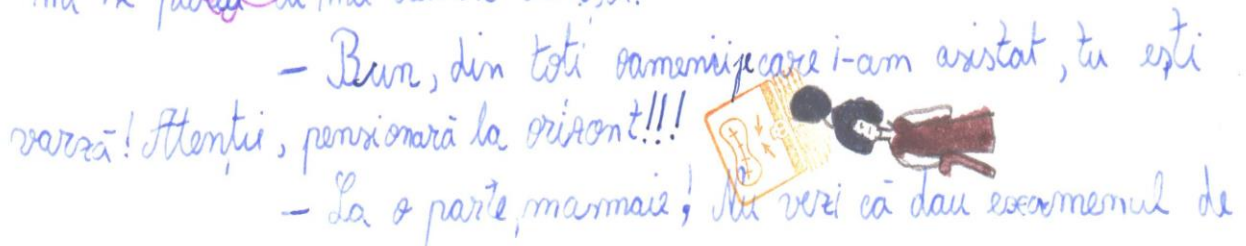 – Bun, din toti oamenii pe care i-am asistat, tu ești
varză! Atentie, pensionară la orizont!!!
– La o parte, mamaie! Nu vezi că dau examenul de